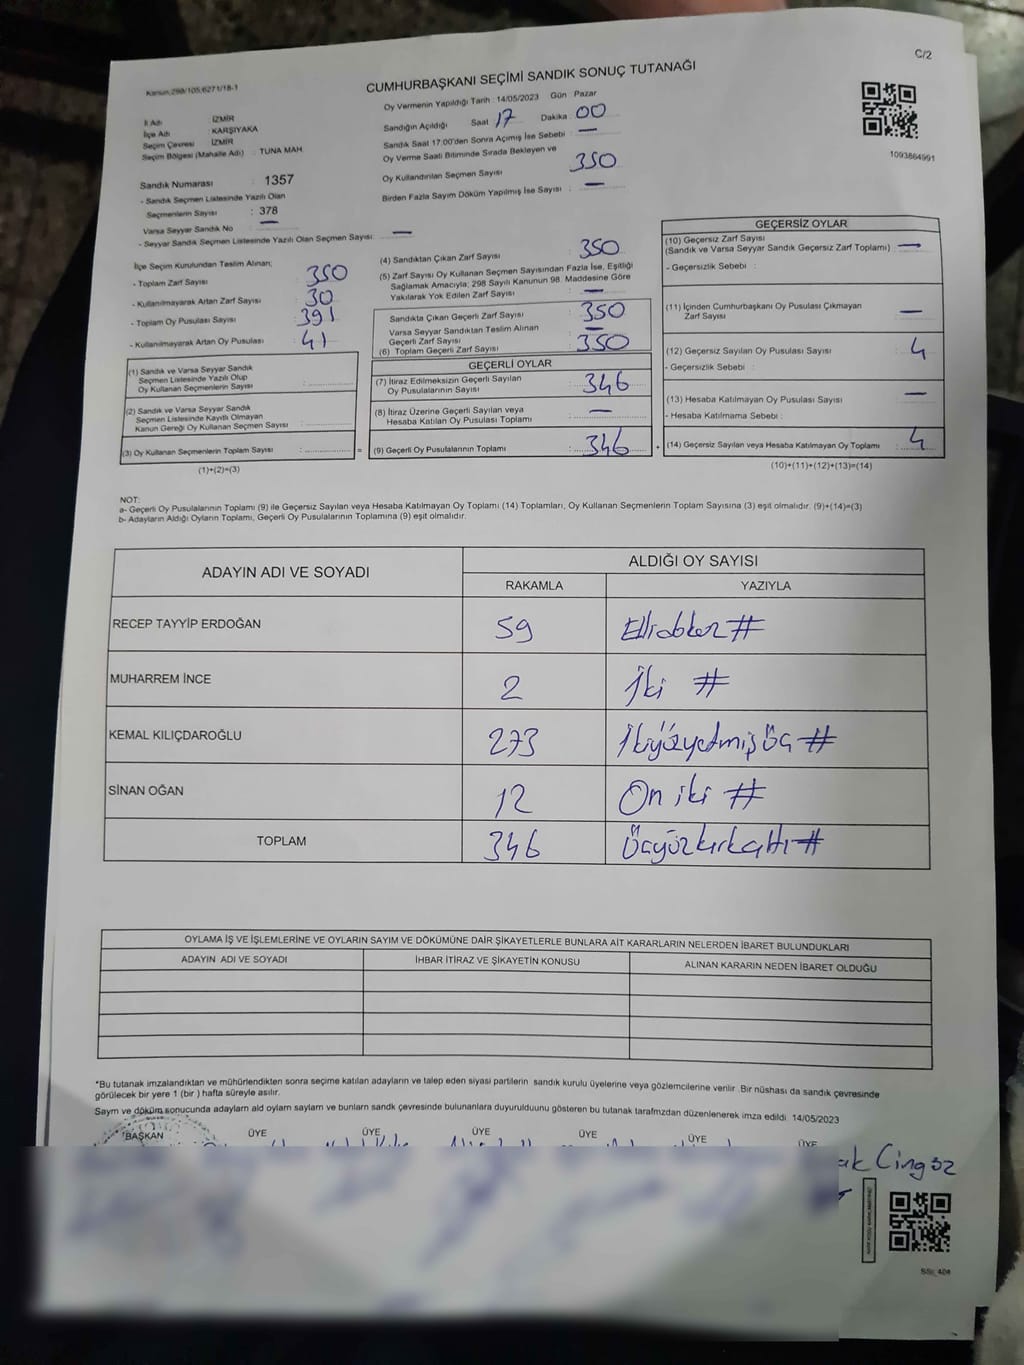 C/2
Kanun:298/105;6271/18-1
CUMHURBAŞKANI SEÇİMİ SANDIK SONUÇ TUTANAĞI
Oy Vermenin Yapıldığı Tarih : 14/05/2023 Gün : Pazar
İl Adı : İZMİR
İlçe Adı : KARŞIYAKA
Seçim Çevresi : İZMİR
Seçim Bölgesi (Mahalle Adı) : TUNA MAH.
Sandığın Açıldığı Saat : 17 Dakika : 00
Sandık Saat 17:00'den Sonra Açımış İse Sebebi : —
Oy Verme Saati Bitiminde Sırada Bekleyen ve
Oy Kullandırılan Seçmen Sayısı : 350
Birden Fazla Sayım Döküm Yapılmış İse Sayısı : —
1093864991
Sandık Numarası : 1357
- Sandık Seçmen Listesinde Yazılı Olan
Seçmenlerin Sayısı : 378
Varsa Seyyar Sandık No : —
- Seyyar Sandık Seçmen Listesinde Yazılı Olan Seçmen Sayısı: —
İlçe Seçim Kurulundan Teslim Alınan;
- Toplam Zarf Sayısı : 350
- Kullanılmayarak Artan Zarf Sayısı : 30
- Toplam Oy Pusulası Sayısı : 391
- Kullanılmayarak Artan Oy Pusulası : 41
(1) Sandık ve Varsa Seyyar Sandık
Seçmen Listesinde Yazılı Olup
Oy Kullanan Seçmenlerin Sayısı :
(2) Sandık ve Varsa Seyyar Sandık
Seçmen Listesinde Kayıtlı Olmayan
Kanun Gereği Oy Kullanan Seçmen Sayısı :
(3) Oy Kullanan Seçmenlerin Toplam Sayısı : =
(1)+(2)=(3)
(4) Sandıktan Çıkan Zarf Sayısı : 350
(5) Zarf Sayısı Oy Kullanan Seçmen Sayısından Fazla İse, Eşitliği
Sağlamak Amacıyla; 298 Sayılı Kanunun 98. Maddesine Göre
Yakılarak Yok Edilen Zarf Sayısı : —
Sandıkta Çıkan Geçerli Zarf Sayısı : 350
Varsa Seyyar Sandıktan Teslim Alınan
Geçerli Zarf Sayısı : —
(6) Toplam Geçerli Zarf Sayısı : 350
GEÇERLİ OYLAR
(7) İtiraz Edilmeksizin Geçerli Sayılan
Oy Pusulalarının Sayısı : 346
(8) İtiraz Üzerine Geçerli Sayılan veya
Hesaba Katılan Oy Pusulası Toplamı : —
(9) Geçerli Oy Pusulalarının Toplamı : 346 +
GEÇERSİZ OYLAR
(10) Geçersiz Zarf Sayısı
(Sandık ve Varsa Seyyar Sandık Geçersiz Zarf Toplamı) : —
- Geçersizlik Sebebi :
(11) İçinden Cumhurbaşkanı Oy Pusulası Çıkmayan
Zarf Sayısı : —
(12) Geçersiz Sayılan Oy Pusulası Sayısı : 4
- Geçersizlik Sebebi :
(13) Hesaba Katılmayan Oy Pusulası Sayısı : —
- Hesaba Katılmama Sebebi :
(14) Geçersiz Sayılan veya Hesaba Katılmayan Oy Toplamı : 4
(10)+(11)+(12)+(13)=(14)
NOT:
a- Geçerli Oy Pusulalarının Toplamı (9) ile Geçersiz Sayılan veya Hesaba Katılmayan Oy Toplamı (14) Toplamları, Oy Kullanan Seçmenlerin Toplam Sayısına (3) eşit olmalıdır. (9)+(14)=(3)
b- Adayların Aldığı Oyların Toplamı, Geçerli Oy Pusulalarının Toplamına (9) eşit olmalıdır.
ADAYIN ADI VE SOYADI
ALDIĞI OY SAYISI
RAKAMLA YAZIYLA
RECEP TAYYİP ERDOĞAN 59 Ellidokuz #
MUHARREM İNCE 2 İki #
KEMAL KILIÇDAROĞLU 273 İkiyüzyetmişüç #
SİNAN OĞAN 12 On iki #
TOPLAM 346 Üçyüzkırkaltı #
OYLAMA İŞ VE İŞLEMLERİNE VE OYLARIN SAYIM VE DÖKÜMÜNE DAİR ŞİKAYETLERLE BUNLARA AİT KARARLARIN NELERDEN İBARET BULUNDUKLARI
ADAYIN ADI VE SOYADI İHBAR İTİRAZ VE ŞİKAYETİN KONUSU ALINAN KARARIN NEDEN İBARET OLDUĞU
*Bu tutanak imzalandıktan ve mühürlendikten sonra seçime katılan adayların ve talep eden siyasi partilerin sandık kurulu üyelerine veya gözlemcilerine verilir. Bir nüshası da sandık çevresinde
görülecek bir yere 1 (bir ) hafta süreyle asılır.
Sayım ve döküm sonucunda adayların ald oylam sayların ve bunların sandk çevresinde bulunanlara duyurulduunu gösteren bu tutanak tarafmzdan düzenlenerek imza edildi. 14/05/2023
BAŞKAN ÜYE ÜYE ÜYE ÜYE ÜYE ÜYE
ak Cingöz
SSI_404